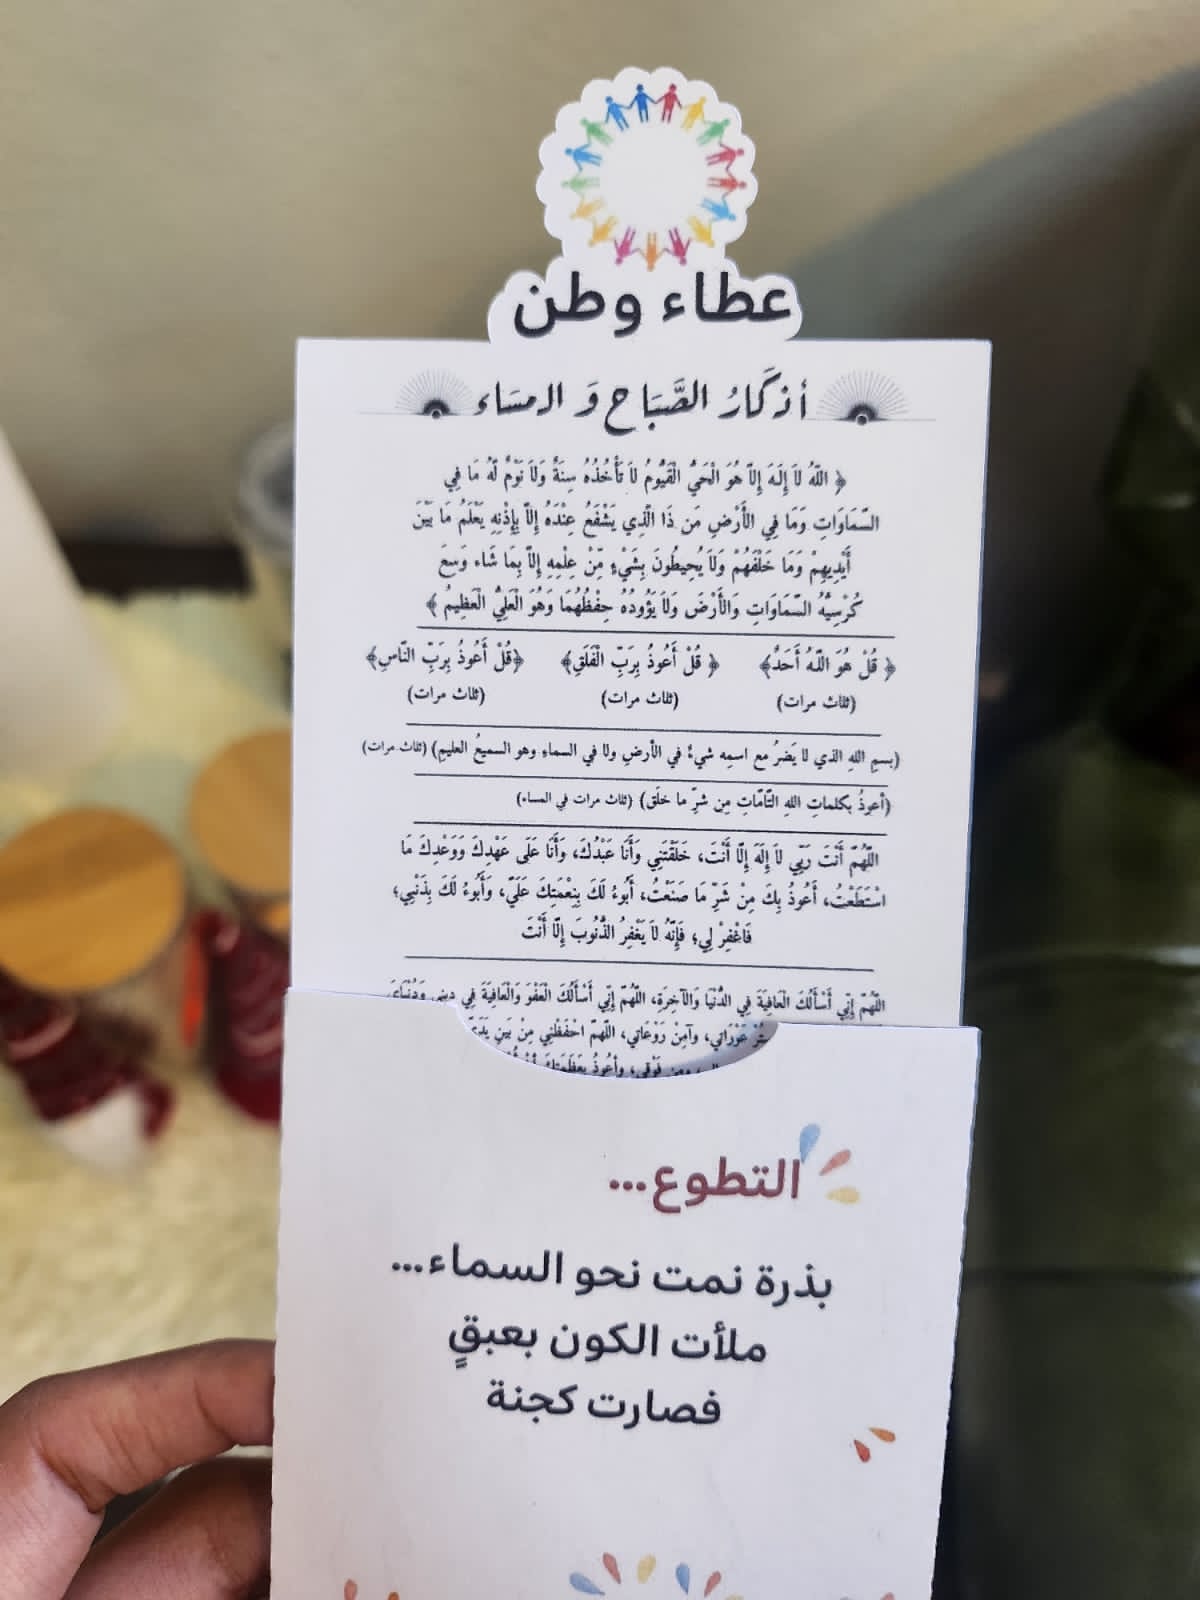 عطاء وطن
أذكَارُ الصَّبَاحِ وَ المسَاء
﴿ اللّهُ لاَ إِلَهَ إِلاَّ هُوَ الْحَيُّ الْقَيُّومُ لاَ تَأْخُذُهُ سِنَةٌ وَلاَ نَوْمٌ لَّهُ مَا فِي
السَّمَاوَاتِ وَمَا فِي الأَرْضِ مَن ذَا الَّذِي يَشْفَعُ عِنْدَهُ إِلاَّ بِإِذْنِهِ يَعْلَمُ مَا بَيْنَ
أَيْدِيهِمْ وَمَا خَلْفَهُمْ وَلاَ يُحِيطُونَ بِشَيْءٍ مِّنْ عِلْمِهِ إِلاَّ بِمَا شَاء وَسِعَ
كُرْسِيُّهُ السَّمَاوَاتِ وَالأَرْضَ وَلاَ يَؤُودُهُ حِفْظُهُمَا وَهُوَ الْعَلِيُّ الْعَظِيمُ ﴾
﴿ قُلْ هُوَ اللَّهُ أَحَدٌ﴾ ﴿ قُلْ أَعُوذُ بِرَبِّ الْفَلَقِ﴾ ﴿قُلْ أَعُوذُ بِرَبِّ النَّاسِ﴾
(ثلاث مرات) (ثلاث مرات) (ثلاث مرات)
(بسمِ اللهِ الذي لا يَضرُ مع اسمِه شيءٌ في الأرضِ ولا في السماءِ وهو السميعُ العليمِ) (ثلاث مرات)
(أعوذُ بكلماتِ اللهِ التَّامَّاتِ مِن شرِّ ما خلَق) (ثلاث مرات في المساء)
اللَّهُمَّ أَنْتَ رَبِّي لاَ إِلَهَ إِلَّا أَنْتَ، خَلَقْتَنِي وَأَنَا عَبْدُكَ، وَأَنَا عَلَى عَهْدِكَ وَوَعْدِكَ مَا
اسْتَطَعْتُ، أَعُوذُ بِكَ مِنْ شَرِّ مَا صَنَعْتُ، أَبُوءُ لَكَ بِنِعْمَتِكَ عَلَيَّ، وَأَبُوءُ لَكَ بِذَنْبِي؛
فَاغْفِرْ لِي؛ فَإِنَّهُ لاَ يَغْفِرُ الذُّنُوبَ إِلَّا أَنْتَ
اللَّهُمَّ إِنِّي أَسْأَلُكَ الْعَافِيَةَ فِي الدُّنْيَا وَالآخِرَةِ، اللَّهُمَّ إِنِّي أَسْأَلُكَ الْعَفْوَ وَالْعَافِيَةَ فِي دِينِي وَدُنْيَايَ
عَوْرَاتي، وَآمِنْ رَوْعَاتي، اللَّهمَّ احْفَظْنِي مِنْ بَينِ يَدَيَّ
ومِن فَوْقِي، وأعُوذُ بِعَظَمَتِكَ
التطوع...
بذرة نمت نحو السماء...
ملأت الكون بعبقٍ
فصارت كجنة